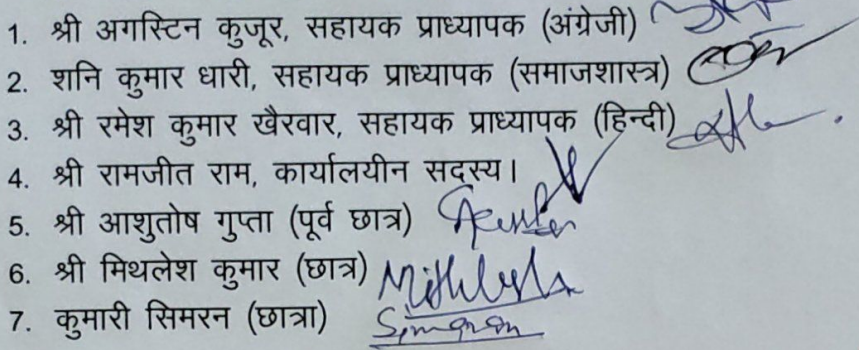 1. श्री अगस्टिन कुजूर, सहायक प्राध्यापक (अंग्रेजी)
2. शनि कुमार धारी, सहायक प्राध्यापक (समाजशास्त्र)
3. श्री रमेश कुमार खैरवार, सहायक प्राध्यापक (हिन्दी)
4. श्री रामजीत राम, कार्यालयीन सदस्य।
5. श्री आशुतोष गुप्ता (पूर्व छात्र)
6. श्री मिथलेश कुमार (छात्र) Mithlesh
7. कुमारी सिमरन (छात्रा) Simran